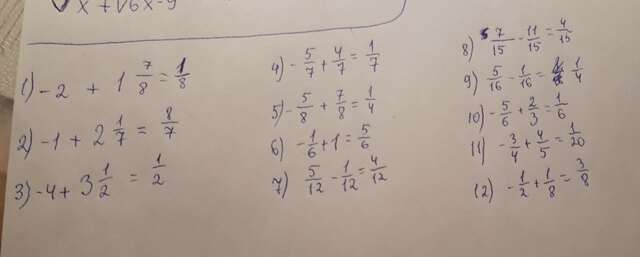 x + √6x-9
1) -2 + 1 7/8 = 1/8
2) -1 + 2 1/7 = 8/7
3) -4 + 3 1/2 = 1/2
4) -5/7 + 4/7 = 1/7
5) -5/8 + 7/8 = 1/4
6) -1/6 + 1 = 5/6
7) 5/12 - 1/12 = 4/12
8) 7/15 - 11/15 = 4/15
9) 5/16 - 1/16 = 1/4
10) -5/6 + 2/3 = 1/6
11) -3/4 + 4/5 = 1/20
12) -1/2 + 1/8 = 3/8